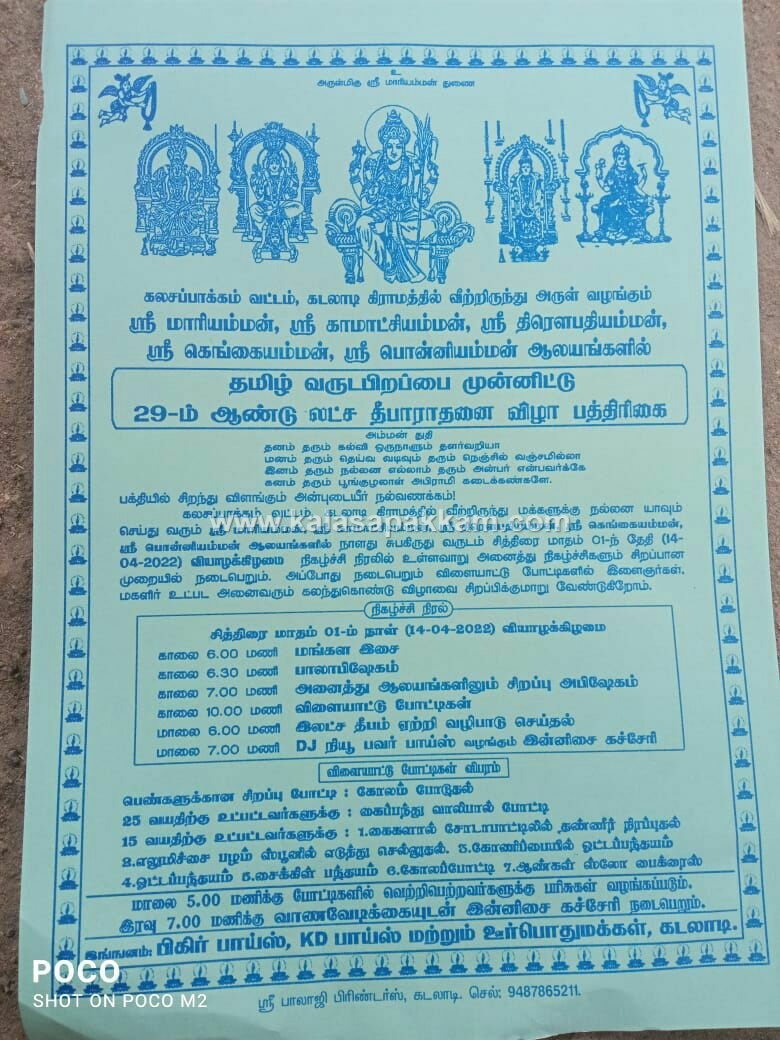 உ
அருள்மிகு ஸ்ரீ மாரியம்மன் துணை
கலசப்பாக்கம் வட்டம், கடலாடி கிராமத்தில் வீற்றிருந்து அருள் வழங்கும்
ஸ்ரீ மாரியம்மன், ஸ்ரீ காமாட்சியம்மன், ஸ்ரீ திரௌபதியம்மன்,
ஸ்ரீ கெங்கையம்மன், ஸ்ரீ பொன்னியம்மன் ஆலயங்களில்
தமிழ் வருடபிறப்பை முன்னிட்டு
29-ம் ஆண்டு லட்ச தீபாராதனை விழா பத்திரிகை
அம்மன் துதி
தனம் தரும் கல்வி ஒருநாளும் தளர்வறியா
மனம் தரும் தெய்வ வடிவும் தரும் நெஞ்சில் வஞ்சமில்லா
இனம் தரும் நல்லன எல்லாம் தரும் அன்பர் என்பவர்க்கே
கனம் தரும் பூங்குழலாள் அபிராமி கடைக்கண்களே.
பக்தியில் சிறந்து விளங்கும் அன்புடையீர் நல்வணக்கம்!
கலசப்பாக்கம் வட்டம், கடலாடி கிராமத்தில் வீற்றிருந்து மக்களுக்கு நல்லன யாவும்
www.kalasapakkam.com
செய்து வரும் ஸ்ரீ மாரியம்மன், ஸ்ரீ கெங்கையம்மன்,
ஸ்ரீ பொன்னியம்மன் ஆலயங்களில் நாளது சுபகிருது வருடம் சித்திரை மாதம் 01-ந் தேதி (14-
04-2022) வியாழக்கிழமை நிகழ்ச்சி நிரலில் உள்ளவாறு அனைத்து நிகழ்ச்சிகளும் சிறப்பான
முறையில் நடைபெறும். அப்போது நடைபெறும் விளையாட்டு போட்டிகளில் இளைஞர்கள்.
மகளிர் உட்பட அனைவரும் கலந்துகொண்டு விழாவை சிறப்பிக்குமாறு வேண்டுகிறோம்.
நிகழ்ச்சி நிரல்
சித்திரை மாதம் 01-ம் நாள் (14-04-2022) வியாழக்கிழமை
காலை 6.00 மணி மங்கள இசை
காலை 6.30 மணி பாலாபிஷேகம்
காலை 7.00 மணி அனைத்து ஆலயங்களிலும் சிறப்பு அபிஷேகம்
காலை 10.00 மணி விளையாட்டு போட்டிகள்
மாலை 6.00 மணி இலட்ச தீபம் ஏற்றி வழிபாடு செய்தல்
மாலை 7.00 மணி DJ நியூ பவர் பாய்ஸ் வழங்கும் இன்னிசை கச்சேரி
விளையாட்டு போட்டிகள் விபரம்
பெண்களுக்கான சிறப்பு போட்டி : கோலம் போடுதல்
25 வயதிற்கு உட்பட்டவர்களுக்கு : கைப்பந்து வாலிபால் போட்டி
15 வயதிற்கு உட்பட்டவர்களுக்கு : 1.கைகளால் சோடாபாட்டிலில் தண்ணீர் நிரப்புதல்
2.எலுமிச்சை பழம் ஸ்பூனில் எடுத்து செல்லுதல். 3.கோணிப்பையில் ஓட்டப்பந்தயம்
4.ஓட்டப்பந்தயம் 5.சைக்கிள் பந்தயம் 6.கோலப்போட்டி 7.ஆண்கள் ஸ்லோ பைக்ரைஸ்
மாலை 5.00 மணிக்கு போட்டிகளில் வெற்றிபெற்றவர்களுக்கு பரிசுகள் வழங்கப்படும்.
இரவு 7.00 மணிக்கு வாணவேடிக்கையுடன் இன்னிசை கச்சேரி நடைபெறும்.
இங்ஙனம்: பிகிர் பாய்ஸ், KD பாய்ஸ் மற்றும் ஊர்பொதுமக்கள், கடலாடி.
ஸ்ரீ பாலாஜி பிரிண்டர்ஸ், கடலாடி. செல்: 9487865211.
POCO
SHOT ON POCO M2